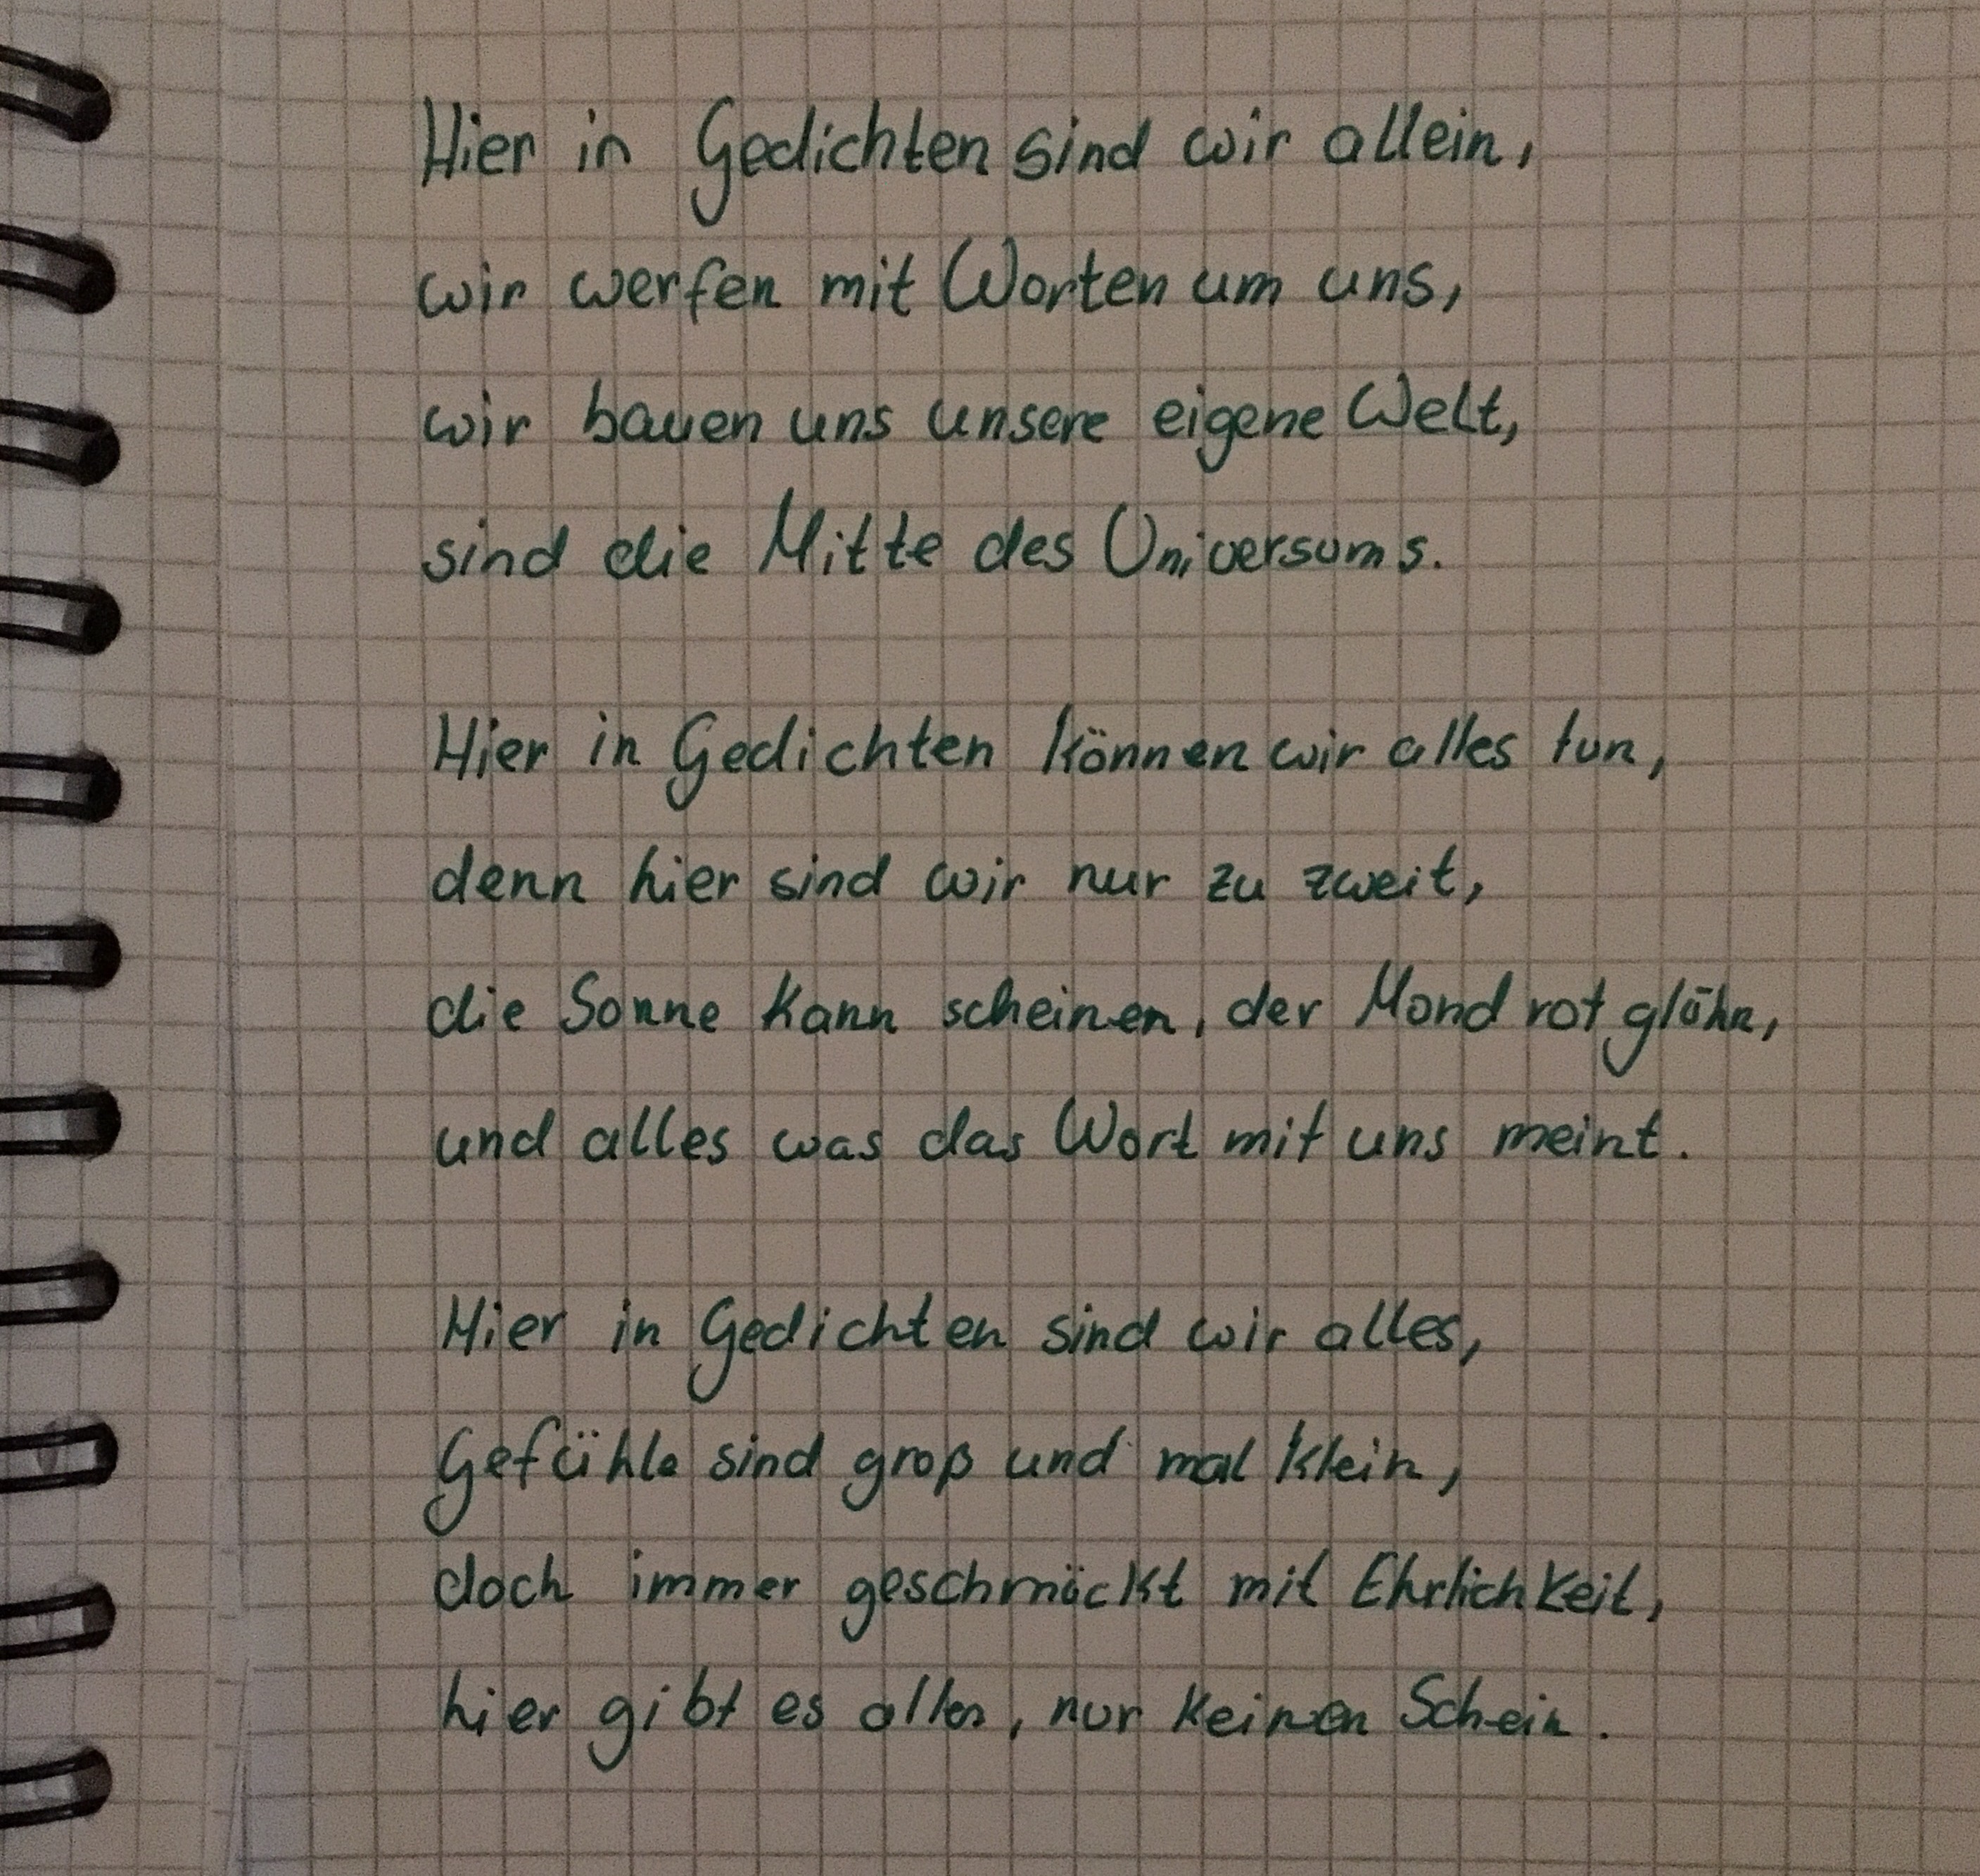 Hier in Gedichten sind wir allein,
wir werfen mit Worten um uns,
wir bauen uns unsere eigene Welt,
sind die Mitte des Universums.
Hier in Gedichten können wir alles tun,
denn hier sind wir nur zu zweit,
die Sonne kann scheinen, der Mond rot glühn,
und alles was das Wort mit uns meint.
Hier in Gedichten sind wir alles,
Gefühle sind groß und mal klein,
doch immer geschmückt mit Ehrlichkeit,
hier gibt es alles, nur keinen Schein.